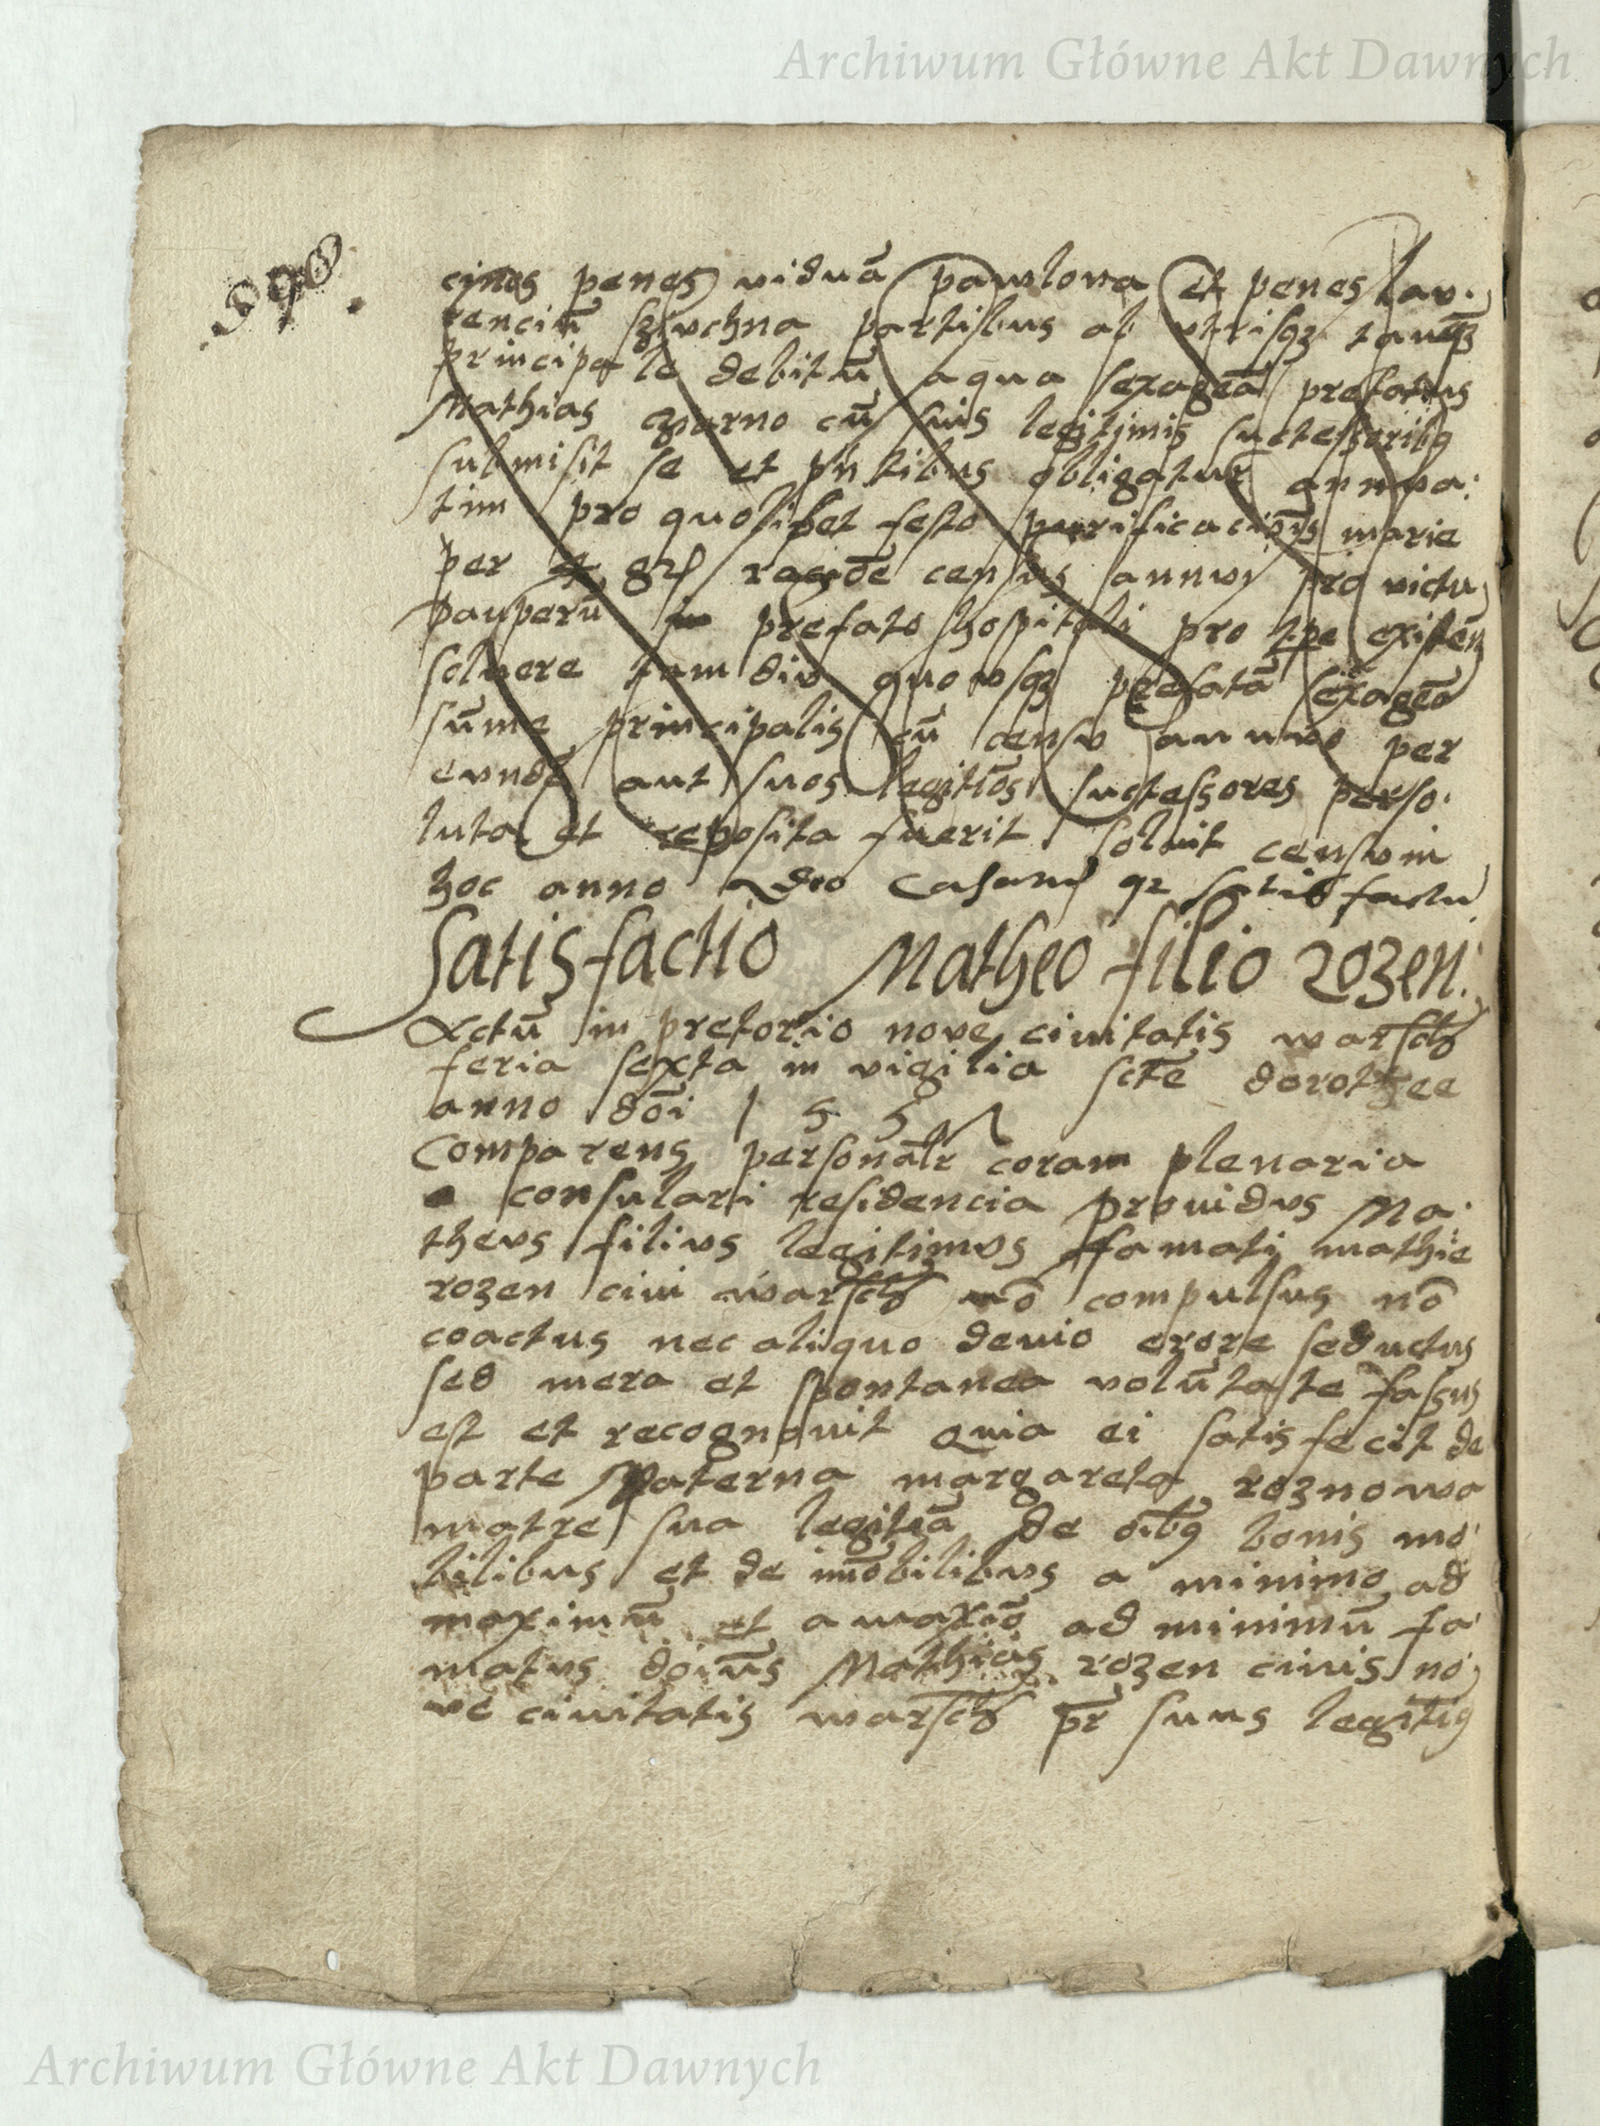 Archiwum Główne Akt Dawnych
590.
cinos penes viduā pawlowa et penes lau.
renciū szuchna partibus ab vtrisqz tanqz
principale debitū a qua sexagēa prefatus
Mathias czarno cū suis legitimis successoribq
submisit se et pn̄tibus obligatur annua:
tim pro quolibet festo purificaciōis marie
per grs racōe census annui pro victu
pauperū in prefato hospitali pro tpe existēn
soluere tam diu quousqz prefatā sexagēa
sūme principalis cū censu annuo per
eundē aut suos legitīos successores perso.
luta et reposita fuerit soluit censum
hoc anno satisfactu
Satisfactio Matheo filio rozen.
Actū in pretorio nove ciuitatis warsch
feria sexta in vigilia sctē dorothee
anno dōi 155
Comparens personalr coram plenaria
consulari residencia prouidus Ma.
theus filius legitimus famati mathie
rozen ciui warsch nō compulsus nō
coactus nec aliquo deuio erore seductus
sed mera et spontanea volūtate fassus
est et recognouit quia ei satisfecit de
parte paterna margareta roznowa
matre sua legitīa de oībq bonis mo.
bilibus et de īmobilibus a minimo ad
maximū et a maxīo ad minimū fa.
matus doīus Mathias rozen ciuis no.
ve ciuitatis warsch pr suus legitīq
Archiwum Główne Akt Dawnych